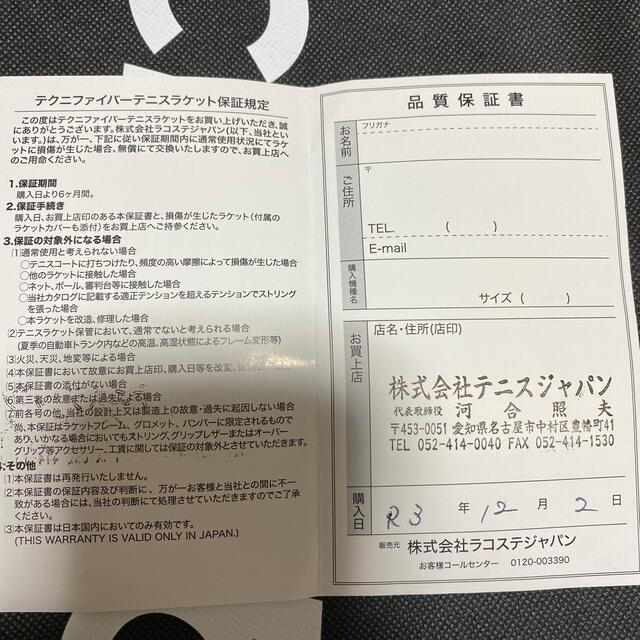 テクニファイバーテニスラケット保証規定
この度はテクニファイバーテニスラケットをお買い上げいただき、誠
にありがとうございます。株式会社ラコステジャパン(以下、当社とい
います。)は、万が一、下記に従い保証期間内に通常使用状況にてラケ
ットに損傷が生じた場合、無償にて交換いたしますので、お買上店へ
のご用命ください。
1.保証期間
購入日より6ヶ月間。
2.保証手続き
購入日、お買上店印のある本保証書と、損傷が生じたラケット(付属の
ラケットカバーも添付)をお買上店へご持参ください。
3.保証の対象外になる場合
(1)通常使用と考えられない場合
○テニスコートに打ちつけたり、頻度の高い摩擦によって損傷が生じた場合
○他のラケットに接触した場合
○ネット、ポール、審判台等に接触した場合
○当社カタログに記載する適正テンションを超えるテンションでストリング
を張った場合
○本ラケットを改造、修理した場合
(2)テニスラケット保管において、通常でないと考えられる場合
(夏季の自動車トランク内などの高温、高湿状態によるフレーム変形等)
(3)火災、天災、地変等による場合
(4)本保証書において故意にお買上店印、購入日等を改変、
(5)本保証書の添付がない場合
(6)第三者の故意または過失による場合
(7)前各号の他、当社の設計上又は製造上の故意・過失に起因しない場合
尚、本保証はラケットフレーム、グロメット、バンパーに限定されるもので
あり、いかなる場合においてもストリング、グリップレザーまたはオーバー
グリップ等アクセサリー、工賃に関しては保証の対象外とさせていただきます。
4.その他
(1)本保証書は再発行いたしません。
(2)本保証書の保証内容及び判断に、万が一お客様と当社との間に不一
致がある場合には、当社の判断にて処理させていただきますのでご了承
ください。
(3)本保証書は日本国内においてのみ有効です。
(THIS WARRANTY IS VALID ONLY IN JAPAN.)
品質保証書
お名前
フリガナ
ご住所
〒
TEL. ( )
E-mail
購入機種名
サイズ ( )
お買上店
店名・住所(店印)
株式会社テニスジャパン
代表取締役 河合照夫
〒453-0051 愛知県名古屋市中村区豊幡町41
TEL 052-414-0040 FAX 052-414-1530
購入日
R3 年 12 月 2 日
販売元 株式会社ラコステジャパン
お客様コールセンター 0120-003390